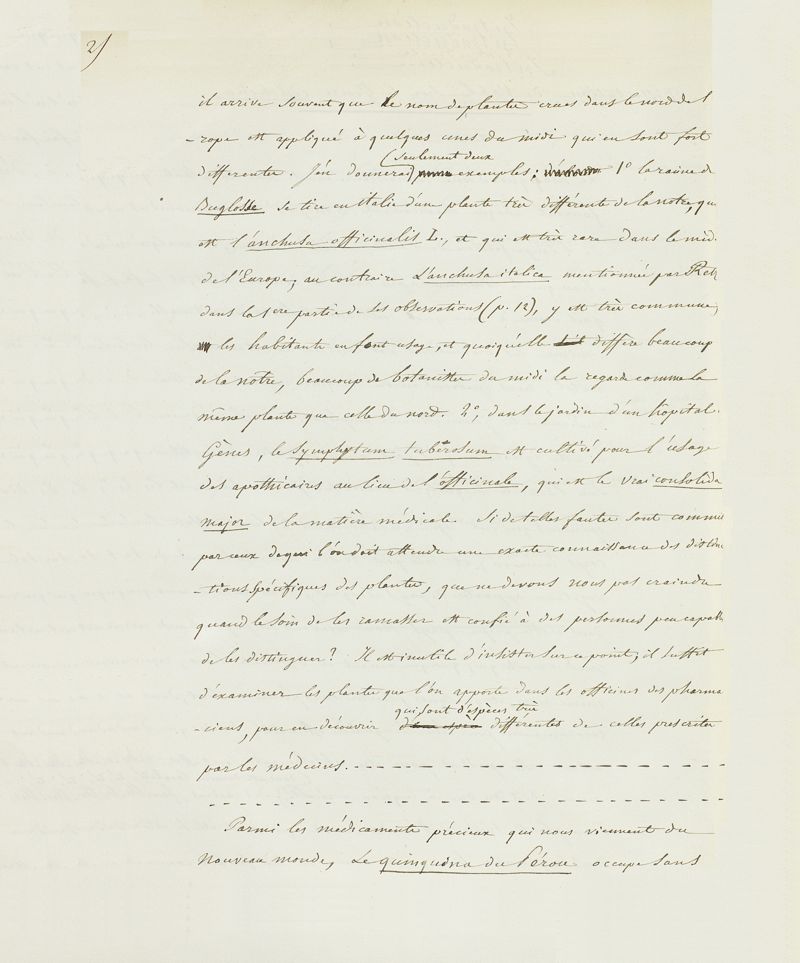 2)
il arrive souvent que le nom de plantes crues dans le nord de l
-rope est appliqué à quelques unes du midi qui en sont fort
differentes. J'en donnerai (seulement deux exemples; 1º la racine de
Buglosse se tire en italie d'un plante très différente de la notre, qu
est l'anchusa officinalis L., et qui est très rare dans le mid.
de l'Europe; au contraire l'anchusa italica mentionnée par Retz
dans la 1ere partie de ses observations (p. 12), y est très commune;
les habitants en font usage, et quoiqu'elle differe beaucoup
de la notre, beaucoup de botanistes du midi la regarde comme la
même plante que celle du nord. 2º, dans le jardin d'un hopital.
Gènes, le Symphytum tuberosum est cultivé pour l'usage
des apothicaires au lieu de l'officinale, qui est le vrai consolida
major de la matière médicale. Si de telles fautes sont commises
par ceux de qui l'on doit attendre une exacte connaissance des distinc
-tions spécifiques des plantes, que ne devons nous pas craindre
quand le soin de les ramasser est confié à des personnes peu capables
de les distinguer? Il est inutile d'insister sur ce point; il suffit
d'examiner les plantes que l'on apporte dans les officines des pharma
-ciens, pour en découvrir qui sont d'espèces très différentes de celles prescrites
par les médecins. — — — — — — — — — — — — — —
— — — — — — — — — — — — — — — — — — — —
Parmi les médicaments précieux qui nous viennent du
Nouveau monde, Le quinquina du Pérou occupe sans